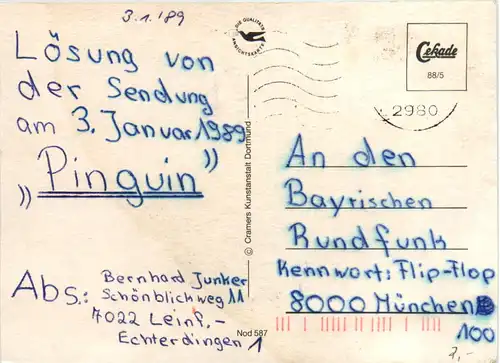 3.1.'89
Lösung von
der Sendung
am 3. Januar 1989
"Pinguin"
Abs.: Bernhard Junker
Schönblickweg 11
7022 Leinf.-
Echterdingen 1
Nod 587
© Cramers Kunstanstalt Dortmund
DIE QUALITÄTS
ANSICHTSKARTE
Cekade
88/5
2980
An den
Bayrischen
Rundfunk
Kennwort: Flip-Flop
8000 München
100
2,-